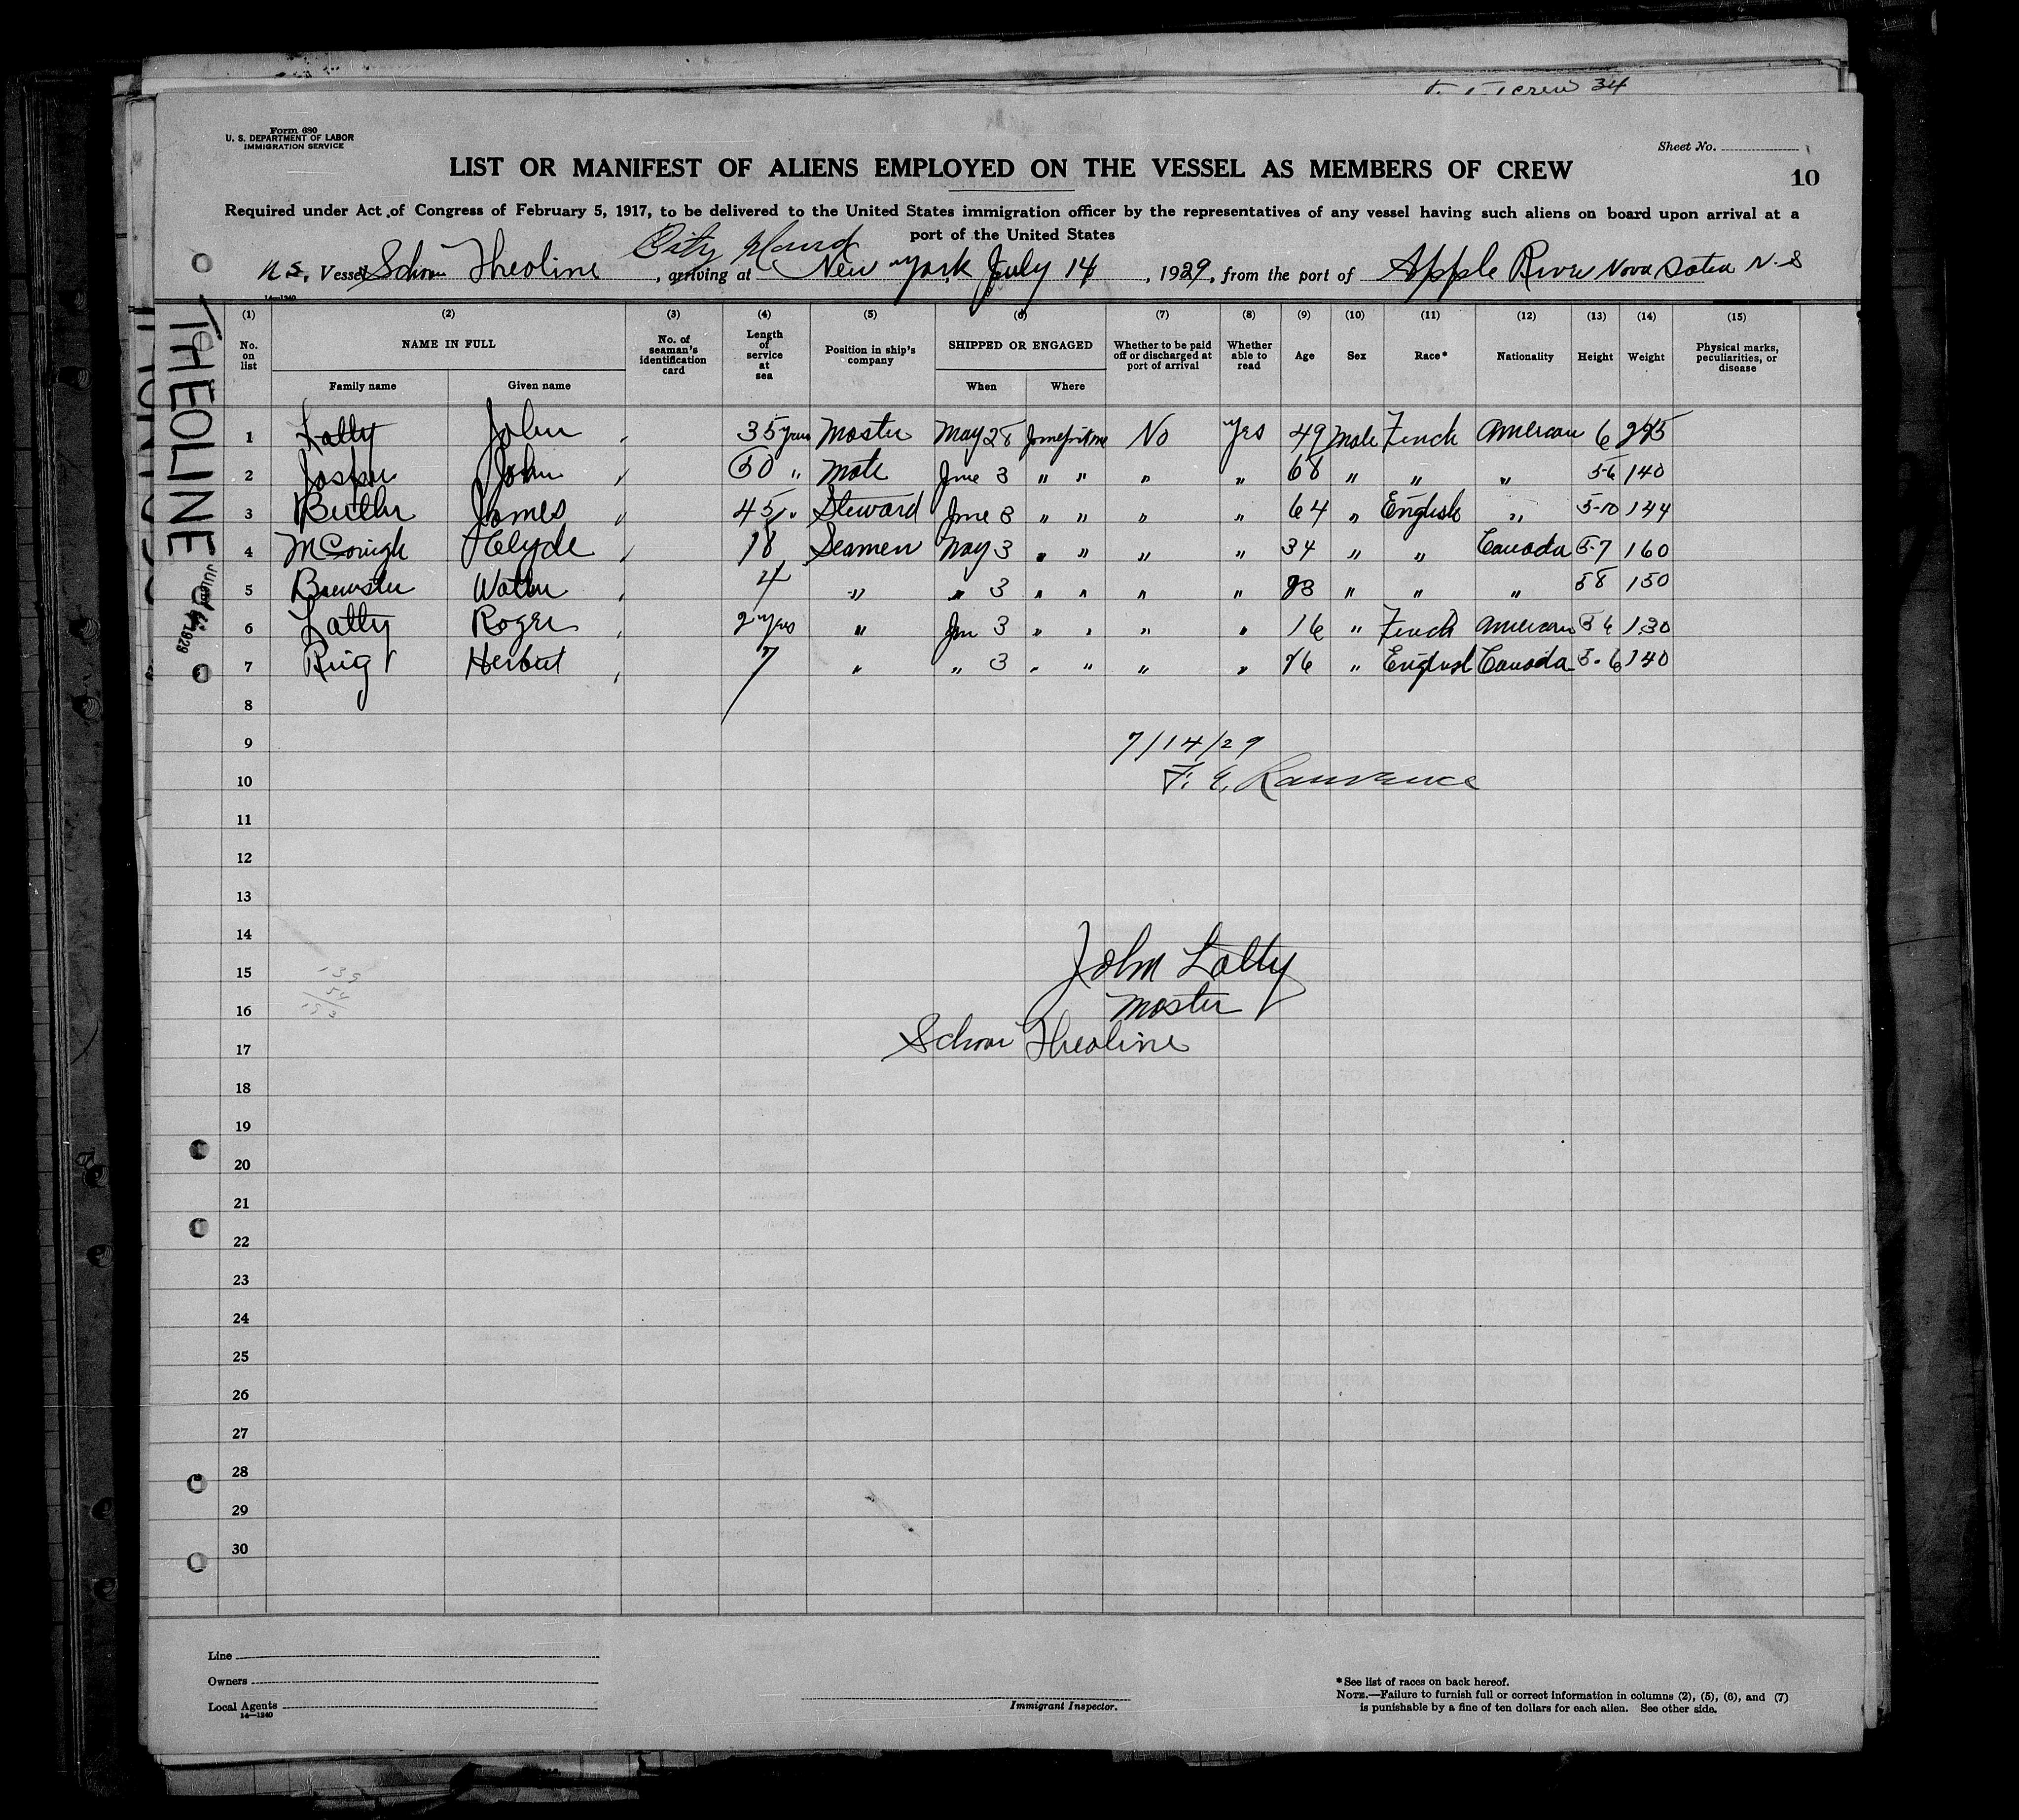 crew 34
Form 680
U. S. DEPARTMENT OF LABOR
IMMIGRATION SERVICE
Sheet No.
LIST OR MANIFEST OF ALIENS EMPLOYED ON THE VESSEL AS MEMBERS OF CREW
10
Required under Act of Congress of February 5, 1917, to be delivered to the United States immigration officer by the representatives of any vessel having such aliens on board upon arrival at a
port of the United States
City Island
Vessel Theoline, arriving at New York July 14, 1929, from the port of Apple River Nova Scotia N.S
14—1240
(1) (2) (3) (4) (5) (6) (7) (8) (9) (10) (11) (12) (13) (14) (15)
No. on list NAME IN FULL No. of seaman's identification card Length of service at sea Position in ship's company SHIPPED OR ENGAGED Whether to be paid off or discharged at port of arrival Whether able to read Age Sex Race* Nationality Height Weight Physical marks, peculiarities, or disease
Family name Given name When Where
1 Latty John 35 years Master May 28 No Yes 49 Male French American 6
2 Jasper John 50 " Mate June 3 " " " " 68 " " " 5-6 140
3 Butler James 45 " Steward June 3 " " " " 64 " English " 5-10 144
4 18 Seamen May 3 " " " " 34 " " Canada 5-7 160
5 Brewster Walter 4 " " 3 " " " " " " " 58 150
6 Latty Roger 2 yrs " Jun 3 " " " " 16 " French American 130
7 Herbert 7 " " 3 " " " " " English Canada 5-6 140
8
9
10
11
12
13
14
15
16
17
18
19
20
21
22
23
24
25
26
27
28
29
30
7/14/29
F. E. Lawrence
John Latty
Master
Theoline
139
54
193
THEOLINE
1929
Line
Owners
Local Agents
14—1240
Immigrant Inspector.
* See list of races on back hereof.
NOTE.—Failure to furnish full or correct information in columns (2), (5), (6), and (7)
is punishable by a fine of ten dollars for each alien. See other side.